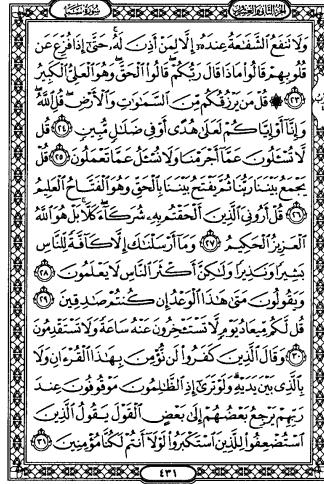 سورة سبأ الجزء الثاني والعشرون
وَلَا تَنفَعُ ٱلشَّفَٰعَةُ عِندَهُۥٓ إِلَّا لِمَنْ أَذِنَ لَهُۥ حَتَّىٰٓ إِذَا فُزِّعَ عَن
قُلُوبِهِمْ قَالُوا۟ مَاذَا قَالَ رَبُّكُمْ قَالُوا۟ ٱلْحَقَّ وَهُوَ ٱلْعَلِىُّ ٱلْكَبِيرُ
﴿٢٣﴾ ۞ قُلْ مَن يَرْزُقُكُم مِّنَ ٱلسَّمَٰوَٰتِ وَٱلْأَرْضِ قُلِ ٱللَّهُ
وَإِنَّآ أَوْ إِيَّاكُمْ لَعَلَىٰ هُدًى أَوْ فِى ضَلَٰلٍ مُّبِينٍ ﴿٢٤﴾ قُل
لَّا تُسْـَٔلُونَ عَمَّآ أَجْرَمْنَا وَلَا نُسْـَٔلُ عَمَّا تَعْمَلُونَ ﴿٢٥﴾ قُلْ
يَجْمَعُ بَيْنَنَا رَبُّنَا ثُمَّ يَفْتَحُ بَيْنَنَا بِٱلْحَقِّ وَهُوَ ٱلْفَتَّاحُ ٱلْعَلِيمُ
﴿٢٦﴾ قُلْ أَرُونِىَ ٱلَّذِينَ أَلْحَقْتُم بِهِۦ شُرَكَآءَ كَلَّا بَلْ هُوَ ٱللَّهُ
ٱلْعَزِيزُ ٱلْحَكِيمُ ﴿٢٧﴾ وَمَآ أَرْسَلْنَٰكَ إِلَّا كَآفَّةً لِّلنَّاسِ
بَشِيرًا وَنَذِيرًا وَلَٰكِنَّ أَكْثَرَ ٱلنَّاسِ لَا يَعْلَمُونَ ﴿٢٨﴾
وَيَقُولُونَ مَتَىٰ هَٰذَا ٱلْوَعْدُ إِن كُنتُمْ صَٰدِقِينَ ﴿٢٩﴾
قُل لَّكُم مِّيعَادُ يَوْمٍ لَّا تَسْتَـْٔخِرُونَ عَنْهُ سَاعَةً وَلَا تَسْتَقْدِمُونَ
﴿٣٠﴾ وَقَالَ ٱلَّذِينَ كَفَرُوا۟ لَن نُّؤْمِنَ بِهَٰذَا ٱلْقُرْءَانِ وَلَا
بِٱلَّذِى بَيْنَ يَدَيْهِ وَلَوْ تَرَىٰٓ إِذِ ٱلظَّٰلِمُونَ مَوْقُوفُونَ عِندَ
رَبِّهِمْ يَرْجِعُ بَعْضُهُمْ إِلَىٰ بَعْضٍ ٱلْقَوْلَ يَقُولُ ٱلَّذِينَ
ٱسْتُضْعِفُوا۟ لِلَّذِينَ ٱسْتَكْبَرُوا۟ لَوْلَآ أَنتُمْ لَكُنَّا مُؤْمِنِينَ ﴿٣١﴾
٤٣١